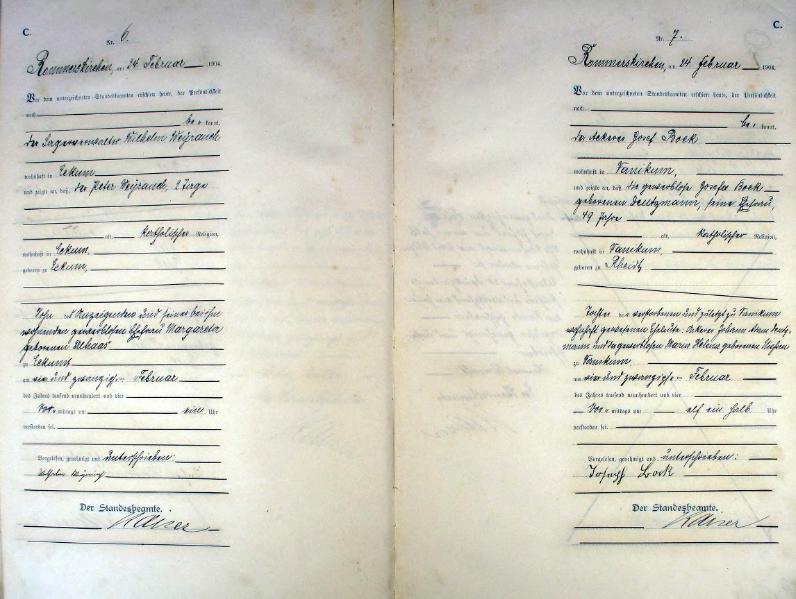 C.
Nr. 6.
Rommerskirchen, am 24. Februar 1904.
Vor dem unterzeichneten Standesbeamten erschien heute, der Persönlichkeit
nach
be kannt,
der Wilhelm Weyrauch
wohnhaft in Eckum
und zeigte an, daß der Peter Weyrauch, 2 Tage
alt, katholischer Religion,
wohnhaft in Eckum,
geboren zu Eckum,
Sohn Anzeigenden und seiner bei ihm
wohnenden gewerblosen Ehefrau Margareta
geborenen
zu Eckum
am vier und zwanzigsten Februar
des Jahres tausend neunhundert und vier
Vor mittags um ein Uhr
verstorben sei.
Vorgelesen, genehmigt und unterschrieben:
Wilhelm Weyrauch
Der Standesbeamte.
Kaiser
C.
Nr. 7.
Rommerskirchen, am 24. Februar 1904.
Vor dem unterzeichneten Standesbeamten erschien heute, der Persönlichkeit
nach
be kannt,
der Ackerer Josef Bock
wohnhaft in Vanikum,
und zeigte an, daß die gewerblose Josefa Bock
geborenen, seine Ehefrau,
49 Jahre
alt, katholischer Religion,
wohnhaft in Vanikum,
geboren zu Rheidt
Tochter der verstorbenen und zuletzt zu Vanikum
wohnhaft gewesenen Eheleute: Ackerer Johann Adam
mann und der gewerblosen Maria Helena geborenen
zu Vanikum
am vier und zwanzigsten Februar
des Jahres tausend neunhundert und vier
Vor mittags um elf ein halb Uhr
verstorben sei.
Vorgelesen, genehmigt und unterschrieben:
Joseph Bock
Der Standesbeamte.
Kaiser